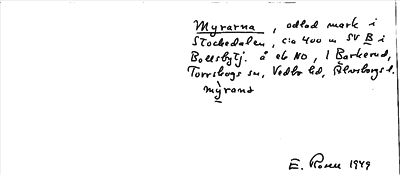 Myrarna, odlad mark i
Stockedalen, c:a 400 m SV B i
Bollsbytj. å eb NO, 1 Barkerud,
Torrskogs sn, Vedbo hd, Älvsborgs l.
mỳrana
E. Rosell 1949